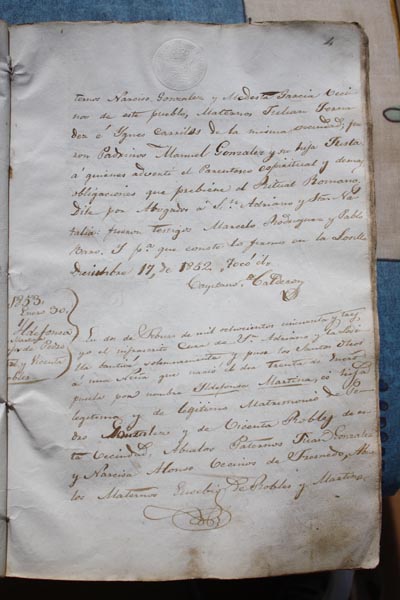 4
ternos Narciso Gonzalez y Modesta Garcia Veci
nos de este pueblo, Maternos Julian
è Ygnes de la misma vecindad, fue
ron Padrinos Manuel Gonzalez y su hija
à quienes adverti el Parentesco espiritual y demas
obligaciones que prebiene el Ritual Romano
Dila por Abogados à S. Adriano y
talia: fueron testigos Marcelo Rodriguez y Pablo
Y p.ª que conste lo firmo en la Losilla
Diciembre 17, de 1852,
Cayetano Calderon
1853.
Enero 30.
Yldefonsa
de Pedro
y Vicenta
Robles
En dos de de mil ochocientos cincuenta y tres,
yo el infrascrito Cura de S.n Adriano y la Losi
lla bauticé solemnemente y puse los Santos Oleos
à una Niña que nació el dia treinta de Enero
por nombre Yldefonsa Martina, es hija
legitima, y de legitimo Matrimonio de Pe
dro Gonzalez y de Vicenta Robles de es
ta Vecindad, Abuelos Paternos Juan Gonzalez
y Narcisa Alonso Vecinos de Abue
los Maternos de Robles y Martina